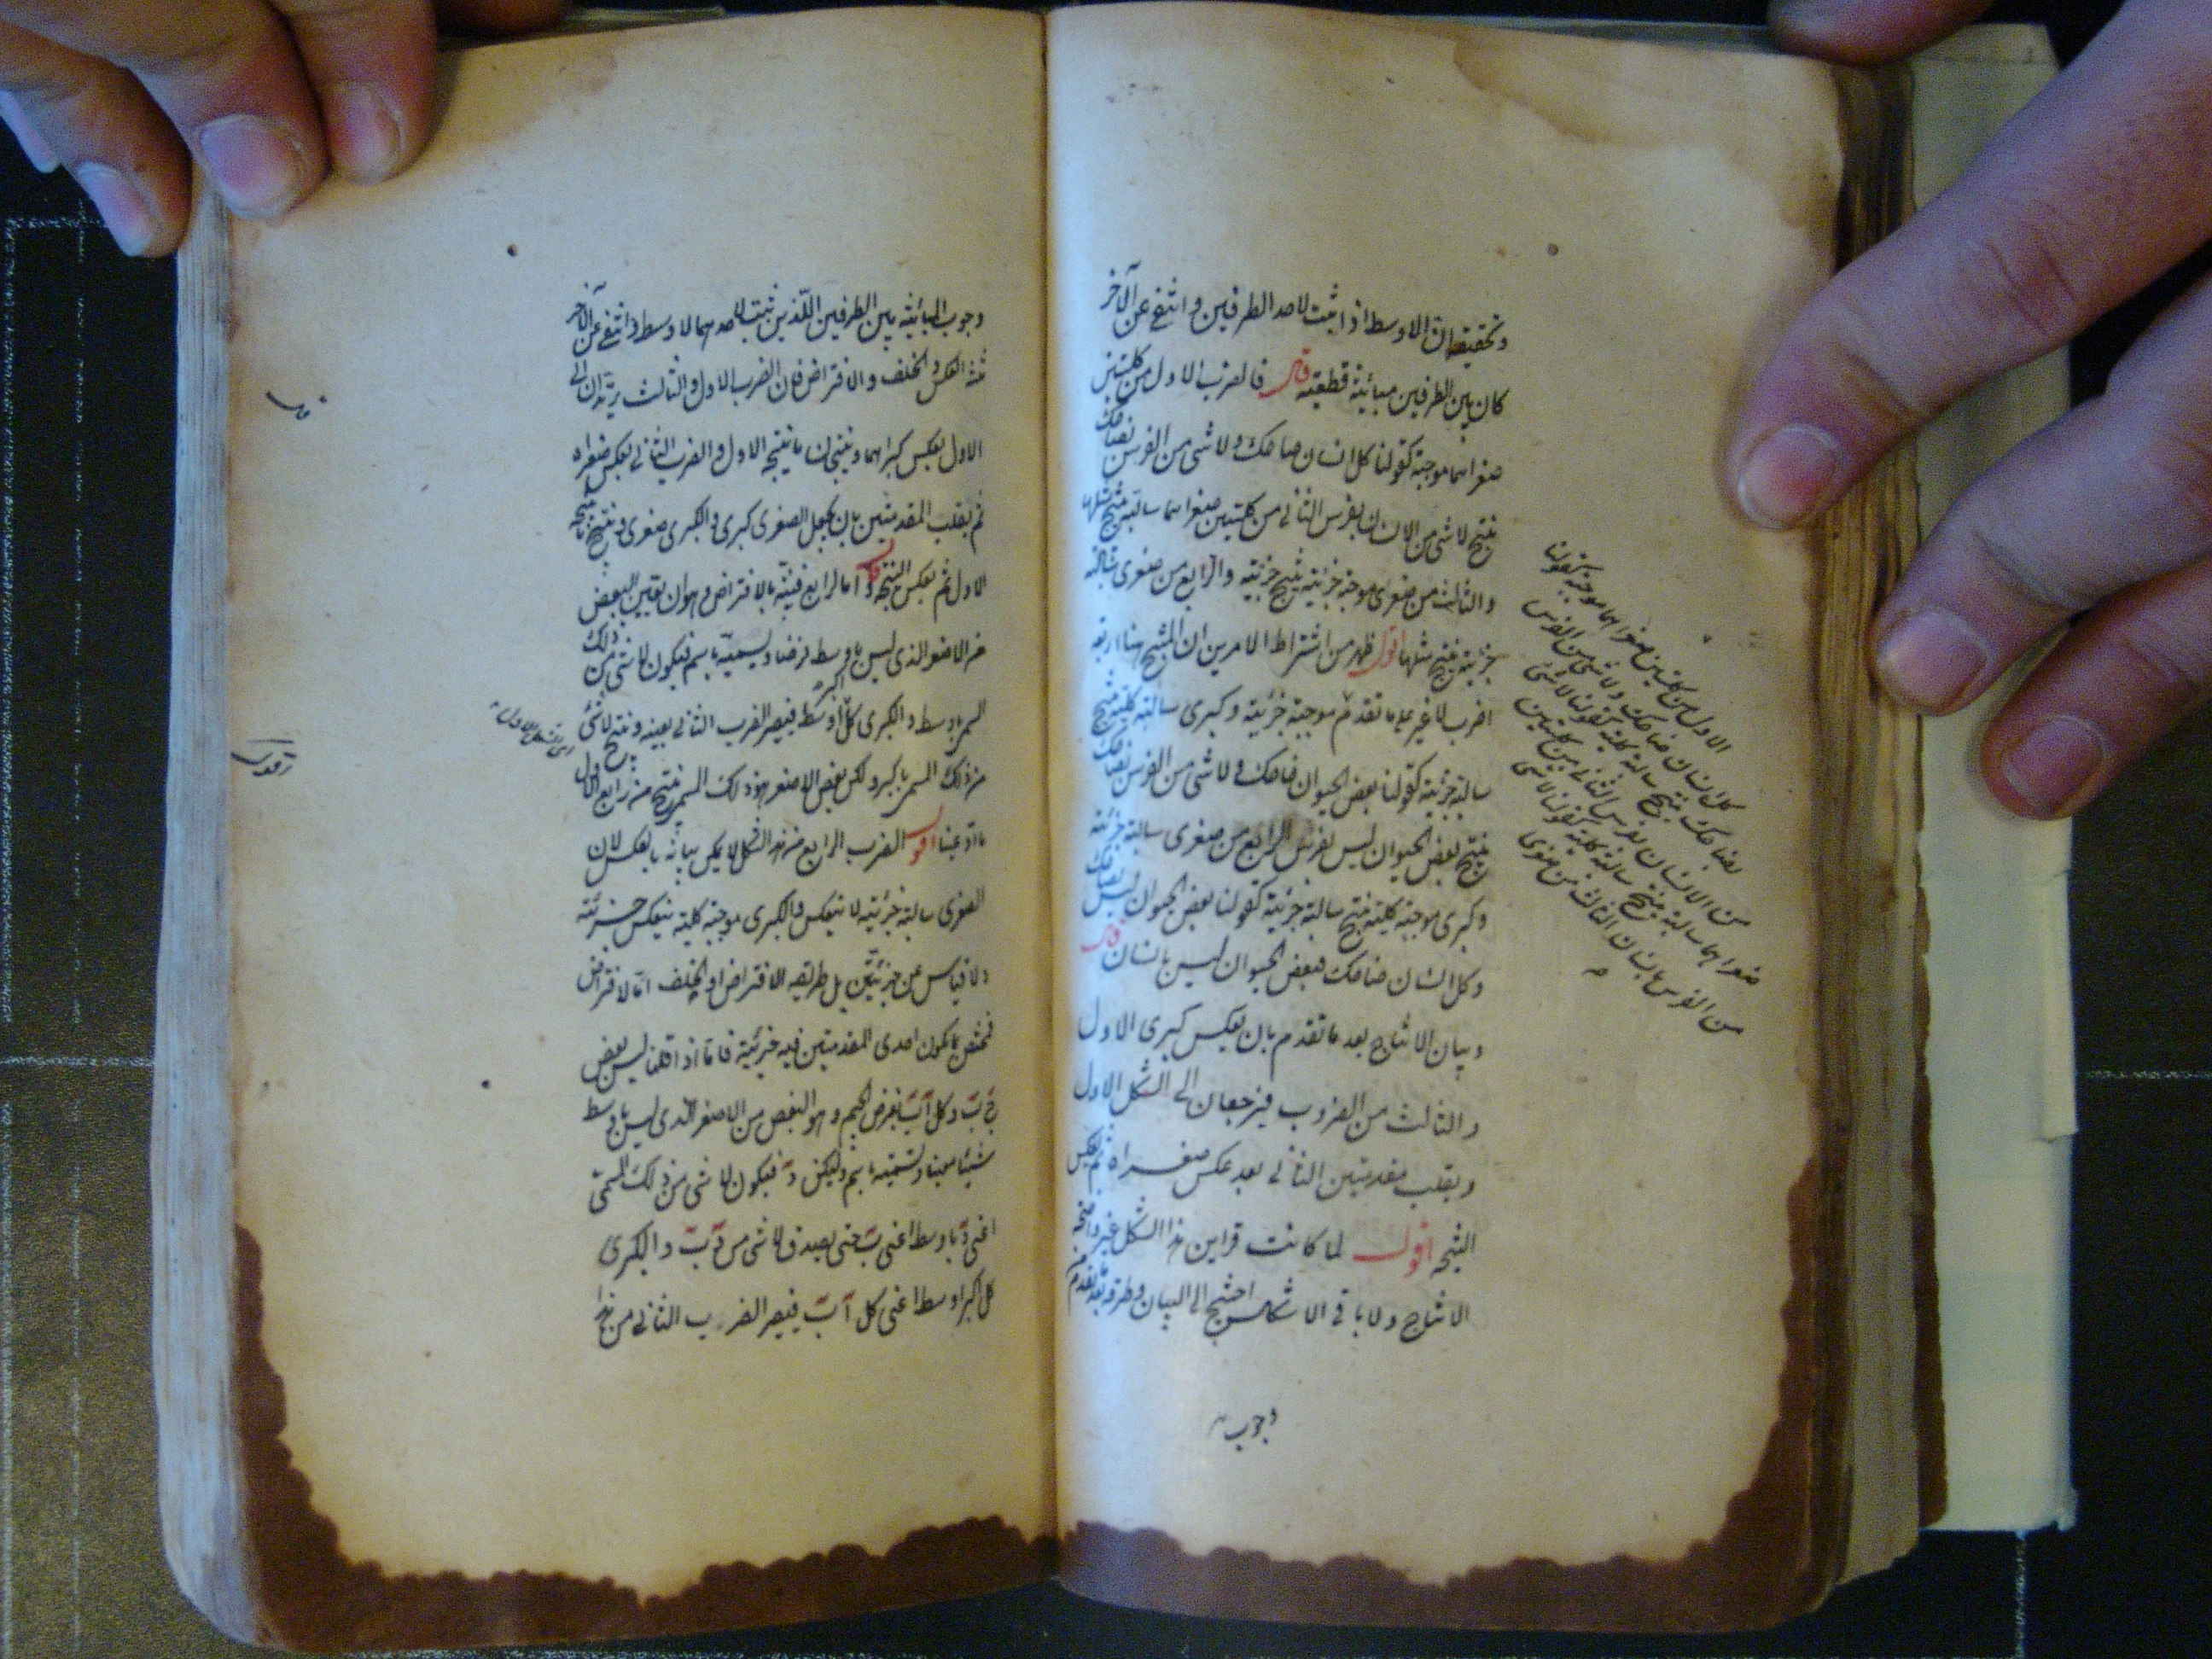 وتحقيقه ان الاوسط اذا ثبت لاحد الطرفين وانتفى عن الآخر
كان بين الطرفين مباينة قطعية قال فالضرب الاول من كليتين
صغراهما موجبة كقولنا كل انسان ضاحك ولا شئ من الفرس بضاحك
ينتج لا شئ من الانسان بفرس الثانى من كليتين صغراهما سالبة ينتج مثلها
والثالث من صغرى موجبة جزئية ينتج جزئية والرابع من صغرى سالبة
جزئية ينتج مثلها اقول ظهر من اشتراط الامرين ان المنتج هنا اربعة
اضرب لا غير بما تقدم موجبة جزئية وكبرى سالبة كلية ينتج
سالبة جزئية كقولنا بعض الحيوان ضاحك ولا شئ من الفرس بضاحك
ينتج بعض الحيوان ليس بفرس الرابع من صغرى سالبة جزئية
وكبرى موجبة كلية ينتج سالبة جزئية كقولنا بعض الحيوان ليس بضاحك
وكل انسان ضاحك فبعض الحيوان ليس بانسان قال
وبيان الانتاج بعد ما تقدم بان يعكس كبرى الاول
والثالث من الضروب فيرجعان الى الشكل الاول
ويقلب مقدمتين الثانى بعد عكس صغراه ثم يعكس
النتيجة اقول لما كانت قراين هذا الشكل غير واضحة
الانتاج ولا باقى الاشكال احتيج الى البيان وطرقه بعد ما تقدم من
وجوب
الاول من كليتين صغراهما موجبة كقولنا
كل انسان ضاحك ولا شئ من الفرس
بضاحك ينتج سالبة كلية كقولنا لا شئ
من الانسان بفرس الثانى من كليتين
صغراهما سالبة ينتج سالبة كلية كقولنا لا شئ
من الفرس بانسان الثالث من صغرى
وجوب المباينة بين الطرفين اللذين ثبت لاحدهما الاوسط وانتفى عن الآخر
ثلثة العكس والخلف والافتراض فان الضرب الاول والثالث يرتدان الى
الاول بعكس كبراهما وينتجان ما ينتجه الاول والضرب الثانى بعكس صغراه
ثم بقلب المقدمتين بان يجعل الصغرى كبرى والكبرى صغرى وينتج ما ينتجه
الاول ثم بعكس النتيجة قال واما الرابع فنبينه بالافتراض وهو ان يعين البعض
من الاصغر الذى ليس باوسط فرضا ويسميه باسم فيكون لا شئ من ذلك
المسمى باوسط والكبرى كل اكبر اوسط فيصير الضرب الثانى بعينه وينتج لا شئ
من ذلك المسمى باكبر ولكن بعض الاصغر هو ذلك المسمى ينتج من رابع الاول
ما ادعينا اقول الضرب الرابع من هذا الشكل لا يمكن بيانه بالعكس لان
الصغرى سالبة جزئية لا تنعكس والكبرى موجبة كلية تنعكس جزئية
ولا قياس عن جزئيتين بل طريقه الافتراض او الخلف اما الافتراض
فيختص بما يكون احدى المقدمتين فيه جزئية فاما اذا قلنا ليس بعض
ج ب وكل آ ب نفرض الجيم وهو البعض من الاصغر الذى ليس باوسط
شيئا معينا ونسميه باسم وليكن د فيكون لا شئ من ذلك المسمى
اعنى د باوسط اعنى ب حتى يصدق لا شئ من د ب والكبرى
كل اكبر اوسط اعنى كل آ ب فيصير الضرب الثانى من هذا
اى الشكل الاول